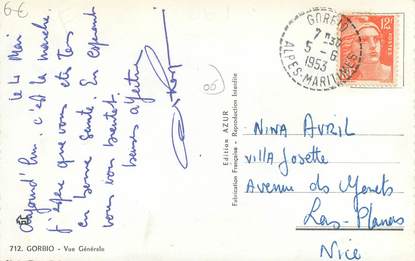 6-€
Le 4 Mai
Aujourd'hui c'est la marche.
J'espère que vous êtes tous
en bonne santé. En espérant
vous voir bientôt.
06
GORBIO
7 H 30
5-6
1953
ALPES-MARITIMES
12F
POSTES
Edition AZUR
Fabrication Française - Reproduction Interdite
NINA AVRIL
Villa Josette
Avenue des
Las-Planas
Nice
712. GORBIO - Vue Générale